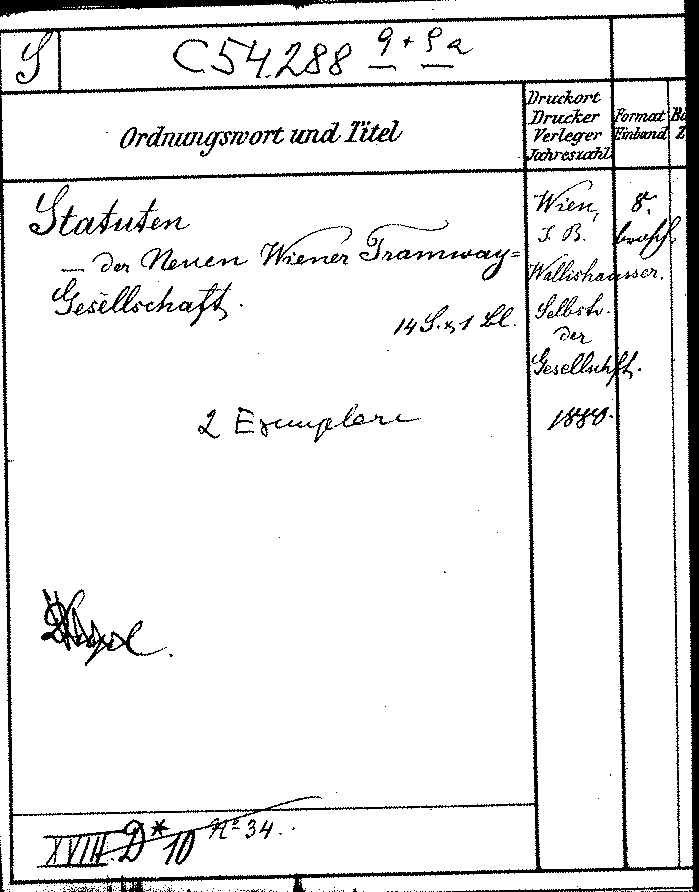 S
C 54.288 9 + 9a
Ordnungswort und Titel
Druckort
Drucker
Verleger
Jahreszahl
Format
Einband
Statuten
— der Neuen Wiener Tramway=
Gesellschaft.
14 S. u. 1 Bl.
2 Exemplare
Wien,
J. B.
Wallishausser.
Selbstv.
der
Gesellschft.
1880.
8.
brosch.
XVIII D* 10 No 34.